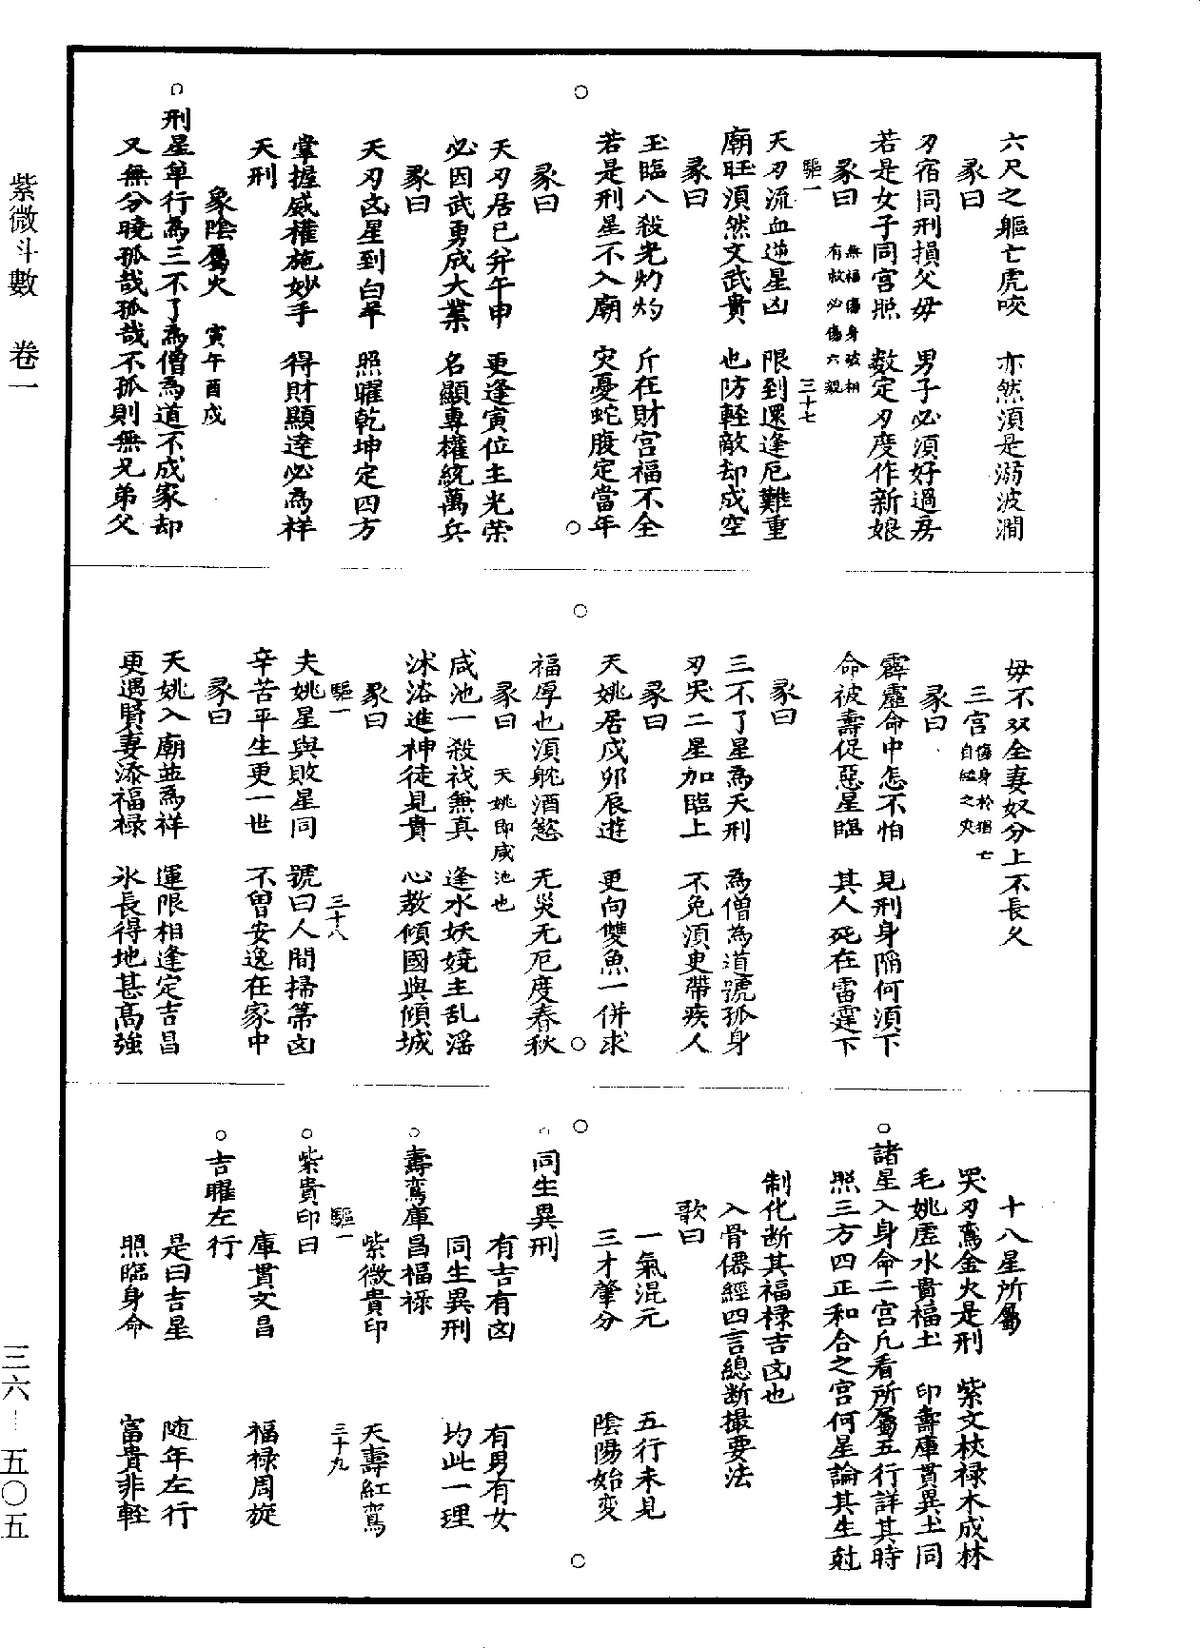 六尺之軀亡虎咬　亦然須是溺波澗
彖曰
刃宿同刑損父毋　男子必須好過房
若是女子同宮照　数定刃度作新娘
彖曰　無福傷身破相　有救必傷六親
驅一　三十七
天刃流血逆星凶　限到還逢厄難重
廟旺湏然文武貴　也防輕敵却成空
彖曰
玉臨八殺光灼灼　斤在財宮福不全
若是刑星不入廟　灾憂蛇腹定當年
彖曰
天刃居巳并午申　更逢寅位主光榮
必因武勇成大業　名顯專權統萬兵
彖曰
天刃凶星到白羊　照曜乾坤定四方
掌握威權施妙手　得財顯達必為祥
天刑
象陰屬火　寅午酉戍
○刑星單行為三不了為僧為道不成家却
又無分曉孤哉孤哉不孤則無兄弟父
毋不双全妻奴分上不長久
三宮　傷身於猖亡　自縊之灾
彖曰
霹靂命中怎不怕　見刑身陷何須下
命被壽促惡星臨　其人死在雷霆下
彖曰
三不了星為天刑　為僧為道號孤身
刃哭二星加臨上　不免須更帶疾人
彖曰
天姚居戍卯辰遊　更向雙魚一併求
福厚也須躭酒慾　无災无厄度春秋
彖曰　天姚即咸池也
咸池一殺衭無真　逢水妖嬈主乱滛
沐浴進神徒見貴　心教傾國與傾城
彖曰
驅一　三十八
夫姚星與敗星同　號曰人間掃箒凶
辛苦平生更一世　不曾安逸在家中
彖曰
天姚入廟並為祥　運限相逢定吉昌
更遇賢妻添福禄　氷長得地甚高強
十八星所屬
哭刃鸞金火是刑　紫文杖禄木成林
毛姚虛水貴福土　印壽庫貫異土同
○諸星入身命二宮凢看所屬五行詳其時
照三方四正和合之宮何星論其生尅
制化断其福禄吉凶也
入骨僊經四言總断撮要法
歌曰
一氣混元　五行未見
三才肇分　陰陽始变
○同生異刑
有吉有凶　有男有女
同生異刑　均此一理
○壽鸞庫昌福禄
紫微貴印　天壽紅鸞
驅一　三十九
○紫貴印曰
庫貫文昌　福禄周旋
○吉曜左行
是曰吉星　随年左行
照臨身命　富貴非輕
紫微斗數　卷一
三六－五〇五